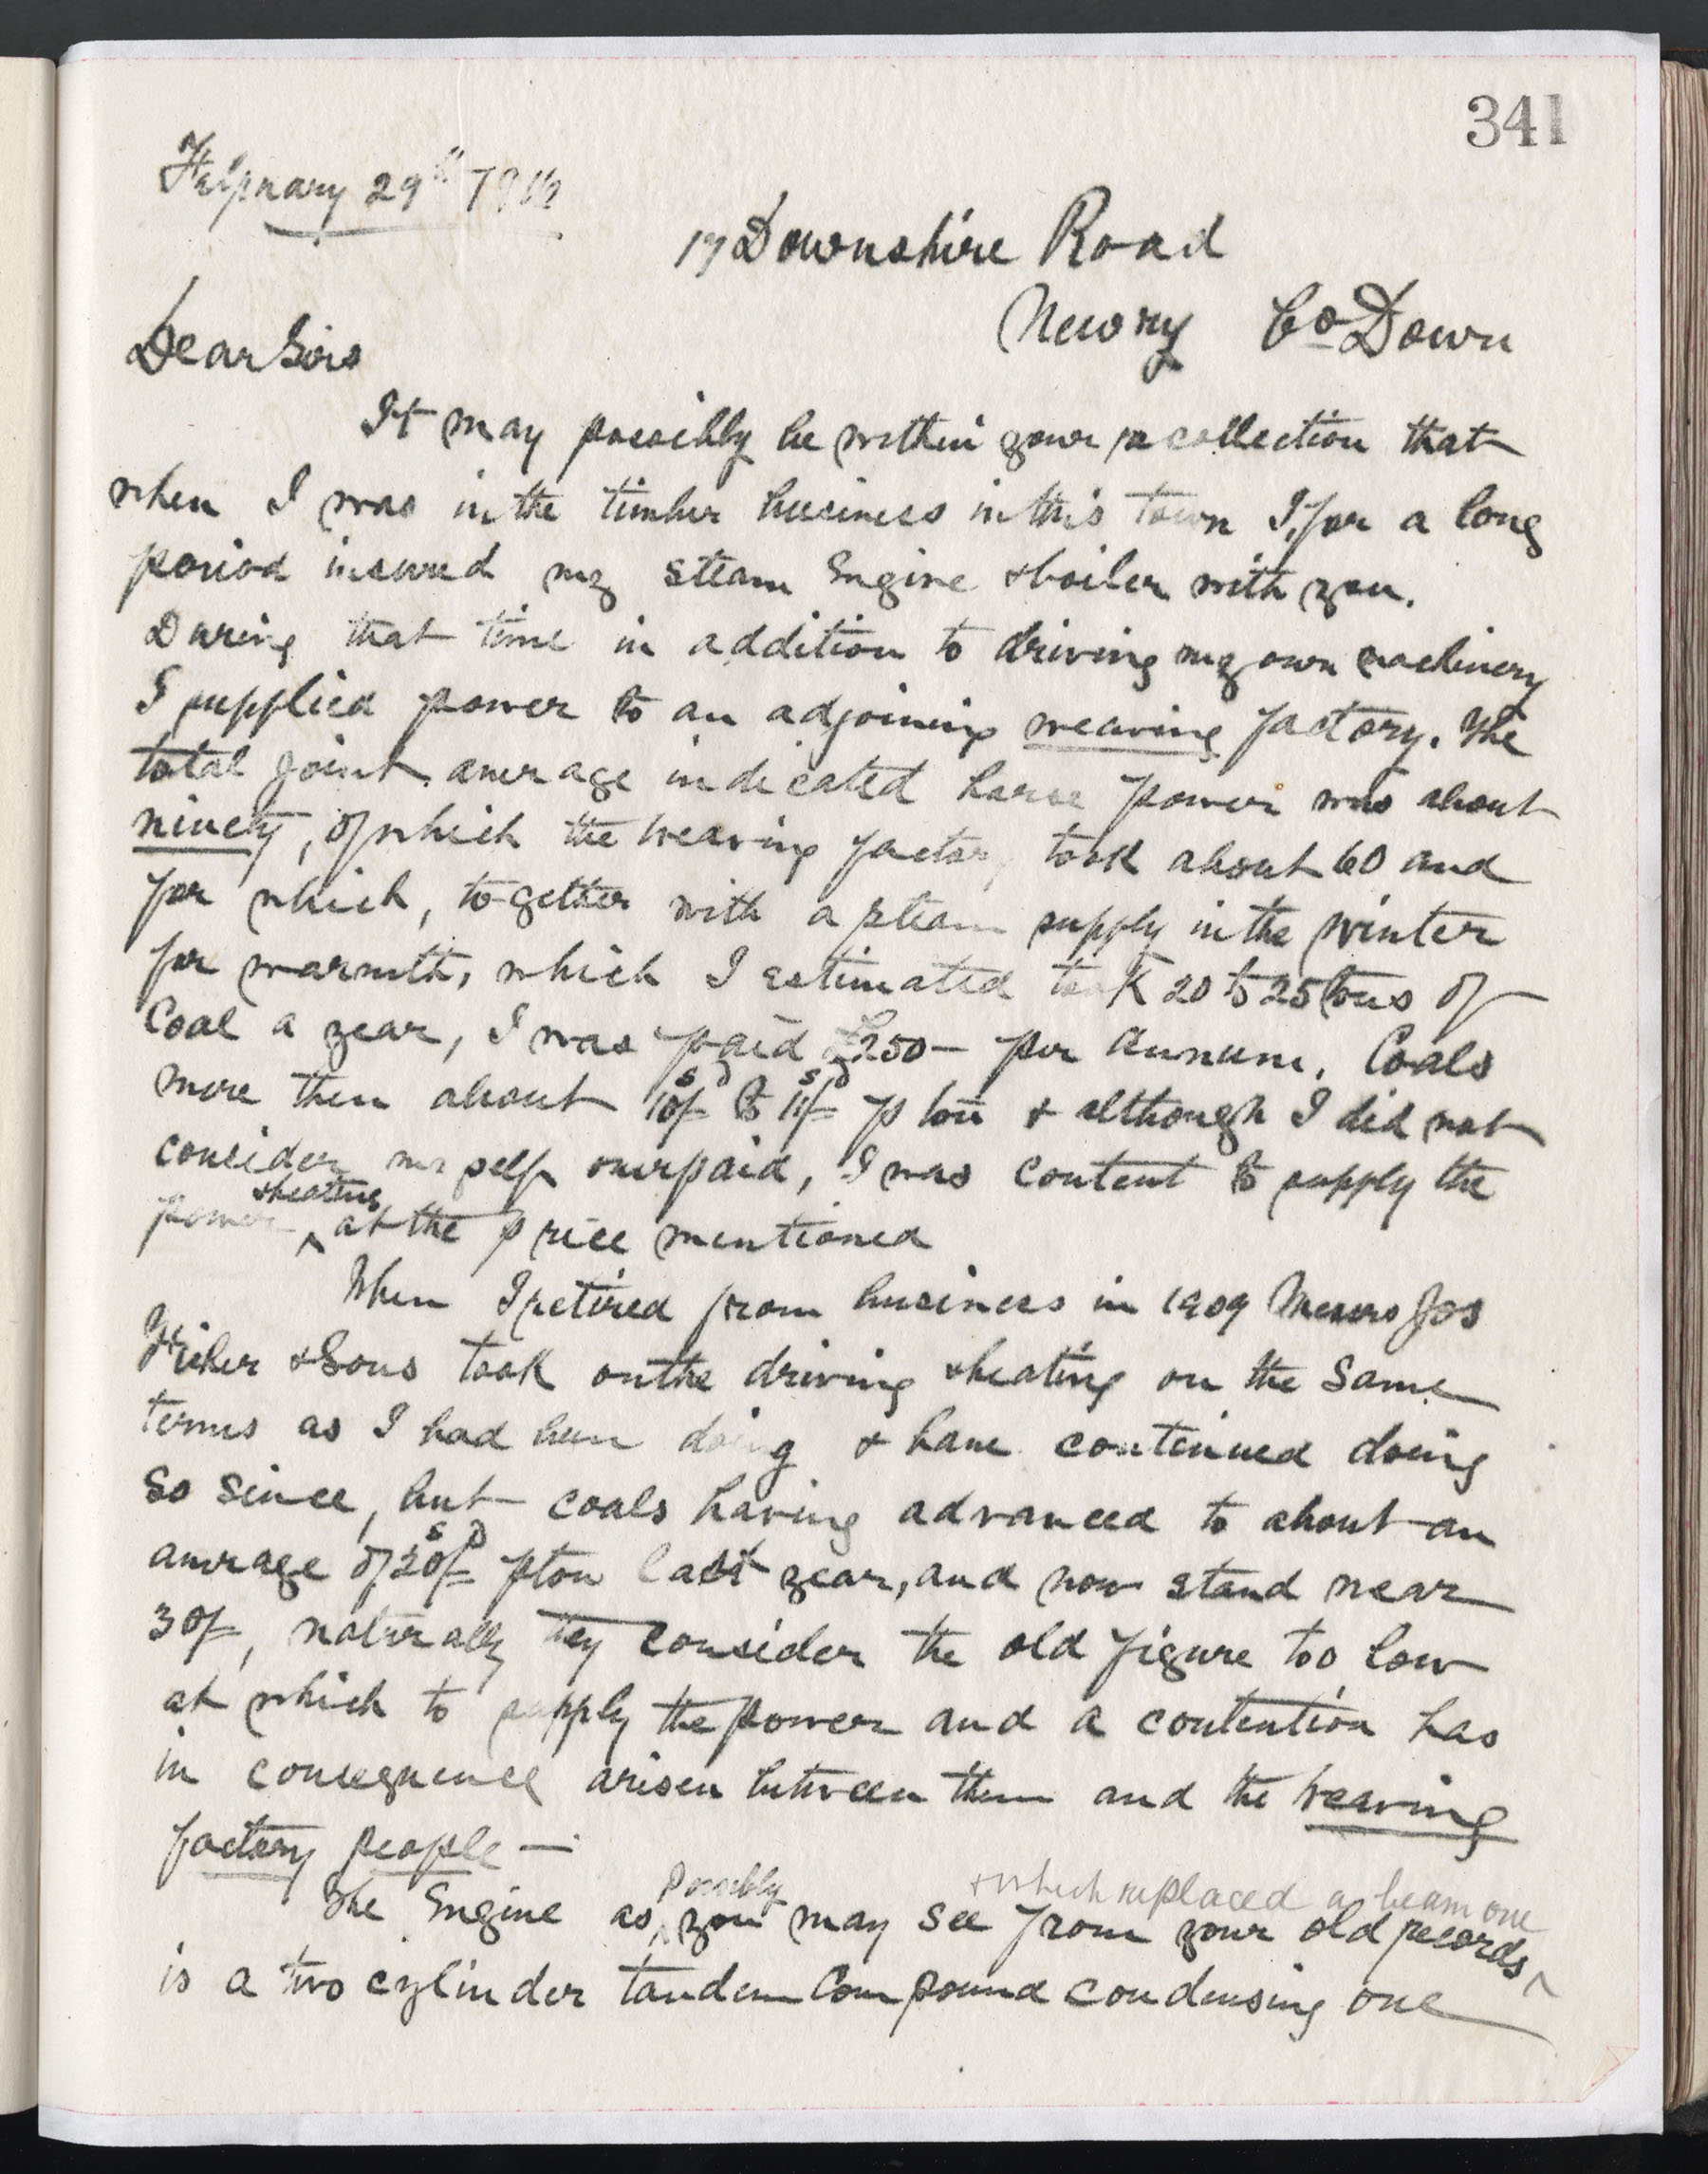 341
February 29th 1916
17 Downshire Road
Newry Co Down
Dear Sirs
It may possibly be within your recollection that
when I was in the timber business in this town I, for a long
period insured my steam Engine & boiler with you.
During that time in addition to driving my own machinery
I supplied power to an adjoining weaving factory. The
total joint average indicated horse power was about
ninety, of which the weaving factory took about 60 and
for which, together with a steam supply in the winter
for warmth, which I estimated took 20 to 25 tons of
Coal a year, I was paid £250 – per annum. Coals
were then about 10s/d to 11s/d p ton & although I did not
consider myself overpaid, I was content to supply the
power & heating at the price mentioned
When I retired from business in 1909 Messrs Jos
Fisher & Sons took on the driving & heating on the Same
terms as I had been doing & have continued doing
So Since, but coals having advanced to about an
average of 20s/d p ton last year, and now stand near
30/-, naturally they consider the old figure too low
at which to supply the power and a contention has
in consequence arisen between them and the weaving
factory people —
The Engine as possibly you may see from your old records & which replaced a beam one
is a two cylinder tandem Compound condensing one